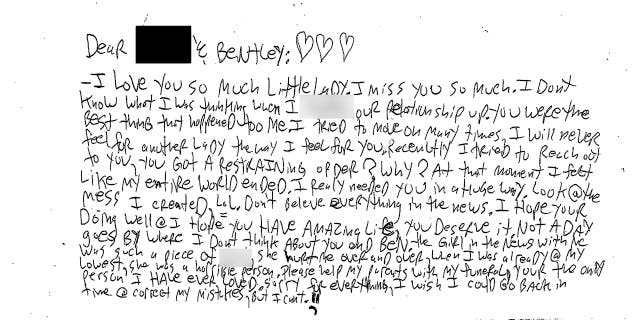 Dear & Bentley:
-I Love You so Much Little lady. I miss you so Much. I Don't
Know What I was thinking when I our Relationship up. You were the
Best thing that happened to Me. I tried to move on Many times. I will never
feel for another Lady the way I feel for you, Recently I tried to Reach out
to you, you Got A RESTRAINING order? Why? At that moment I felt
Like My entire World Ended. I Really needed you in a Huge way. Look @ the
mess I created, LoL. Don't Believe everything in the news. I Hope your
Doing Well @ I Hope you HAVE AMAZING Life, You Deserve it. Not A DAY
goes By where I Don't think ABout You and BEN. the Girl in the News with me
was such a piece of she hurt me over and over, when I was already @ my
Lowest, she was a horrible person. Please help My parents with My funeral, your the only
person I HAVE ever Loved. Sorry for everything, I wish I could GO BACK in
time @ correct my mistakes, But I can't.!!